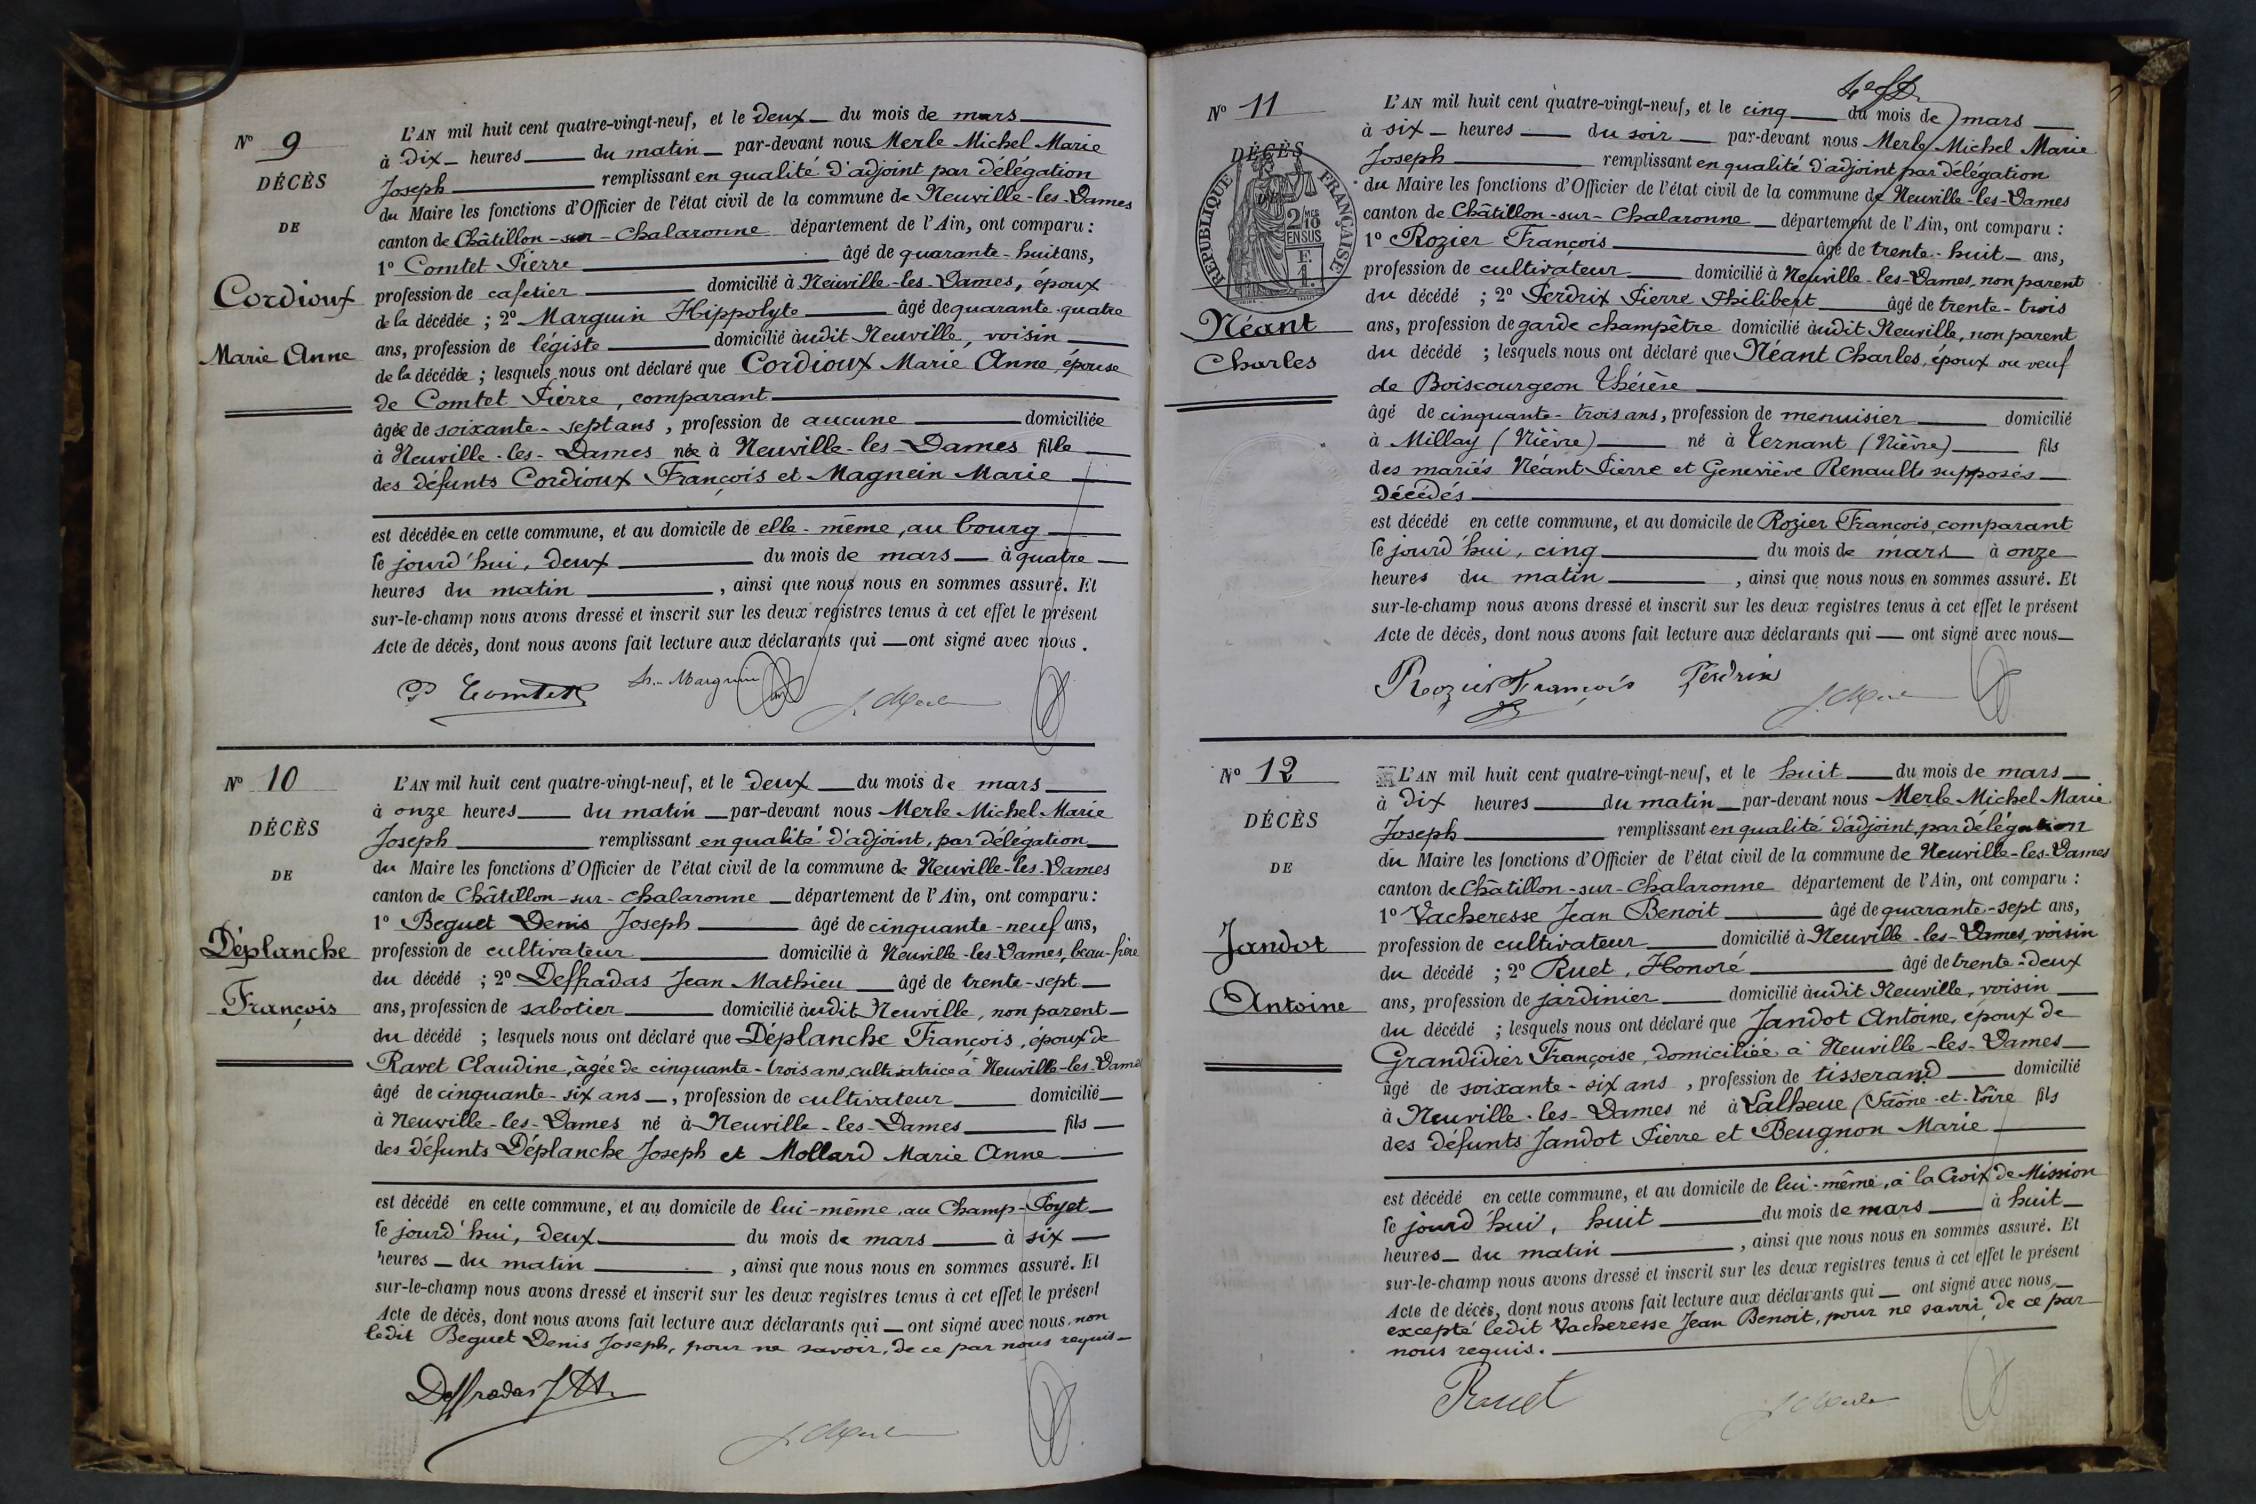 N° 9
DÉCÈS
DE
Cordioux
Marie Anne
L'AN mil huit cent quatre-vingt-neuf, et le deux du mois de mars
à dix heures du matin par-devant nous Merle Michel Marie
Joseph remplissant en qualité d'adjoint par délégation
du Maire les fonctions d'Officier de l'état civil de la commune de Neuville-les-Dames
canton de Châtillon-sur-Chalaronne département de l'Ain, ont comparu :
1° Comtet Pierre âgé de quarante-huit ans,
profession de cafetier domicilié à Neuville-les-Dames, époux
de la décédée ; 2° Marguin Hippolyte âgé de quarante-quatre
ans, profession de légiste domicilié audit Neuville, voisin
de la décédée ; lesquels nous ont déclaré que Cordioux Marie Anne, épouse
de Comtet Pierre, comparant
âgée de soixante-sept ans, profession de aucune domiciliée
à Neuville-les-Dames née à Neuville-les-Dames fille
des défunts Cordioux François et Magnein Marie
est décédée en cette commune, et au domicile de elle-même, au bourg
le jourd'hui, deux du mois de mars à quatre
heures du matin, ainsi que nous nous en sommes assuré. Et
sur-le-champ nous avons dressé et inscrit sur les deux registres tenus à cet effet le présent
Acte de décès, dont nous avons fait lecture aux déclarants qui ont signé avec nous.
P Comtet H. Marguin J. Merle
N° 10
DÉCÈS
DE
Déplanche
François
L'AN mil huit cent quatre-vingt-neuf, et le deux du mois de mars
à onze heures du matin par-devant nous Merle Michel Marie
Joseph remplissant en qualité d'adjoint, par délégation
du Maire les fonctions d'Officier de l'état civil de la commune de Neuville-les-Dames
canton de Châtillon-sur-Chalaronne département de l'Ain, ont comparu :
1° Beguet Denis Joseph âgé de cinquante-neuf ans,
profession de cultivateur domicilié à Neuville-les-Dames, beau-frère
du décédé ; 2° Deffradas Jean Mathieu âgé de trente-sept
ans, profession de sabotier domicilié audit Neuville, non parent
du décédé ; lesquels nous ont déclaré que Déplanche François, époux de
Ravet Claudine, âgée de cinquante-trois ans, cultivatrice à Neuville-les-Dames
âgé de cinquante-six ans, profession de cultivateur domicilié
à Neuville-les-Dames né à Neuville-les-Dames fils
des défunts Déplanche Joseph et Mollard Marie Anne
est décédé en cette commune, et au domicile de lui-même, au Champ-Poyet
le jourd'hui, deux du mois de mars à six
heures du matin, ainsi que nous nous en sommes assuré. Et
sur-le-champ nous avons dressé et inscrit sur les deux registres tenus à cet effet le présent
Acte de décès, dont nous avons fait lecture aux déclarants qui ont signé avec nous, non
ledit Beguet Denis Joseph, pour ne savoir, de ce par nous requis
Deffradas J. Merle
N° 11
DÉCÈS
DE
RÉPUBLIQUE FRANÇAISE
2/10 EN SUS
F. 1.
Néant
Charles
L'AN mil huit cent quatre-vingt-neuf, et le cinq du mois de mars
à six heures du soir par-devant nous Merle Michel Marie
Joseph remplissant en qualité d'adjoint par délégation
du Maire les fonctions d'Officier de l'état civil de la commune de Neuville-les-Dames
canton de Châtillon-sur-Chalaronne département de l'Ain, ont comparu :
1° Rozier François âgé de trente-huit ans,
profession de cultivateur domicilié à Neuville-les-Dames, non parent
du décédé ; 2° Perdrix Pierre Philibert âgé de trente-trois
ans, profession de garde champêtre domicilié audit Neuville, non parent
du décédé ; lesquels nous ont déclaré que Néant Charles, époux ou veuf
de Boiscourgeon Thérèse
âgé de cinquante-trois ans, profession de menuisier domicilié
à Millay (Nièvre) né à Ternant (Nièvre) fils
des mariés Néant Pierre et Geneviève Renault supposés
décédés
est décédé en cette commune, et au domicile de Rozier François, comparant
le jourd'hui, cinq du mois de mars à onze
heures du matin, ainsi que nous nous en sommes assuré. Et
sur-le-champ nous avons dressé et inscrit sur les deux registres tenus à cet effet le présent
Acte de décès, dont nous avons fait lecture aux déclarants qui ont signé avec nous
Rozier François Perdrix J. Merle
N° 12
DÉCÈS
DE
Jandot
Antoine
L'AN mil huit cent quatre-vingt-neuf, et le huit du mois de mars
à dix heures du matin par-devant nous Merle Michel Marie
Joseph remplissant en qualité d'adjoint, par délégation
du Maire les fonctions d'Officier de l'état civil de la commune de Neuville-les-Dames
canton de Châtillon-sur-Chalaronne département de l'Ain, ont comparu :
1° Vacheresse Jean Benoit âgé de quarante-sept ans,
profession de cultivateur domicilié à Neuville-les-Dames, voisin
du décédé ; 2° Ruet, Honoré âgé de trente-deux
ans, profession de jardinier domicilié audit Neuville, voisin
du décédé ; lesquels nous ont déclaré que Jandot Antoine, époux de
Grandidier Françoise, domiciliée à Neuville-les-Dames
âgé de soixante-six ans, profession de tisserand domicilié
à Neuville-les-Dames né à Lalheue (Saône-et-Loire fils
des défunts Jandot Pierre et Beugnon Marie
est décédé en cette commune, et au domicile de lui-même, à la Croix de Mission
le jourd'hui, huit du mois de mars à huit
heures du matin, ainsi que nous nous en sommes assuré. Et
sur-le-champ nous avons dressé et inscrit sur les deux registres tenus à cet effet le présent
Acte de décès, dont nous avons fait lecture aux déclarants qui ont signé avec nous
excepté ledit Vacheresse Jean Benoit, pour ne savoir, de ce par
nous requis.
Ruet J. Merle